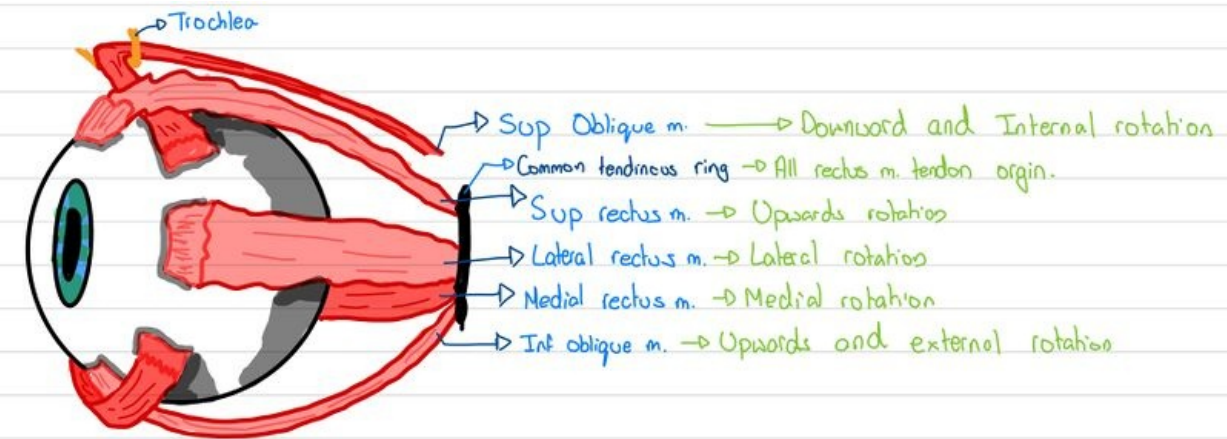 Trochlea
Sup Oblique m. → Downword and Internal rotation
Common tendinous ring → All rectus m. tendon orgin.
Sup rectus m. → Upwards rotation
Lateral rectus m. → Lateral rotation
Medial rectus m. → Medial rotation
Inf oblique m. → Upwords and external rotation